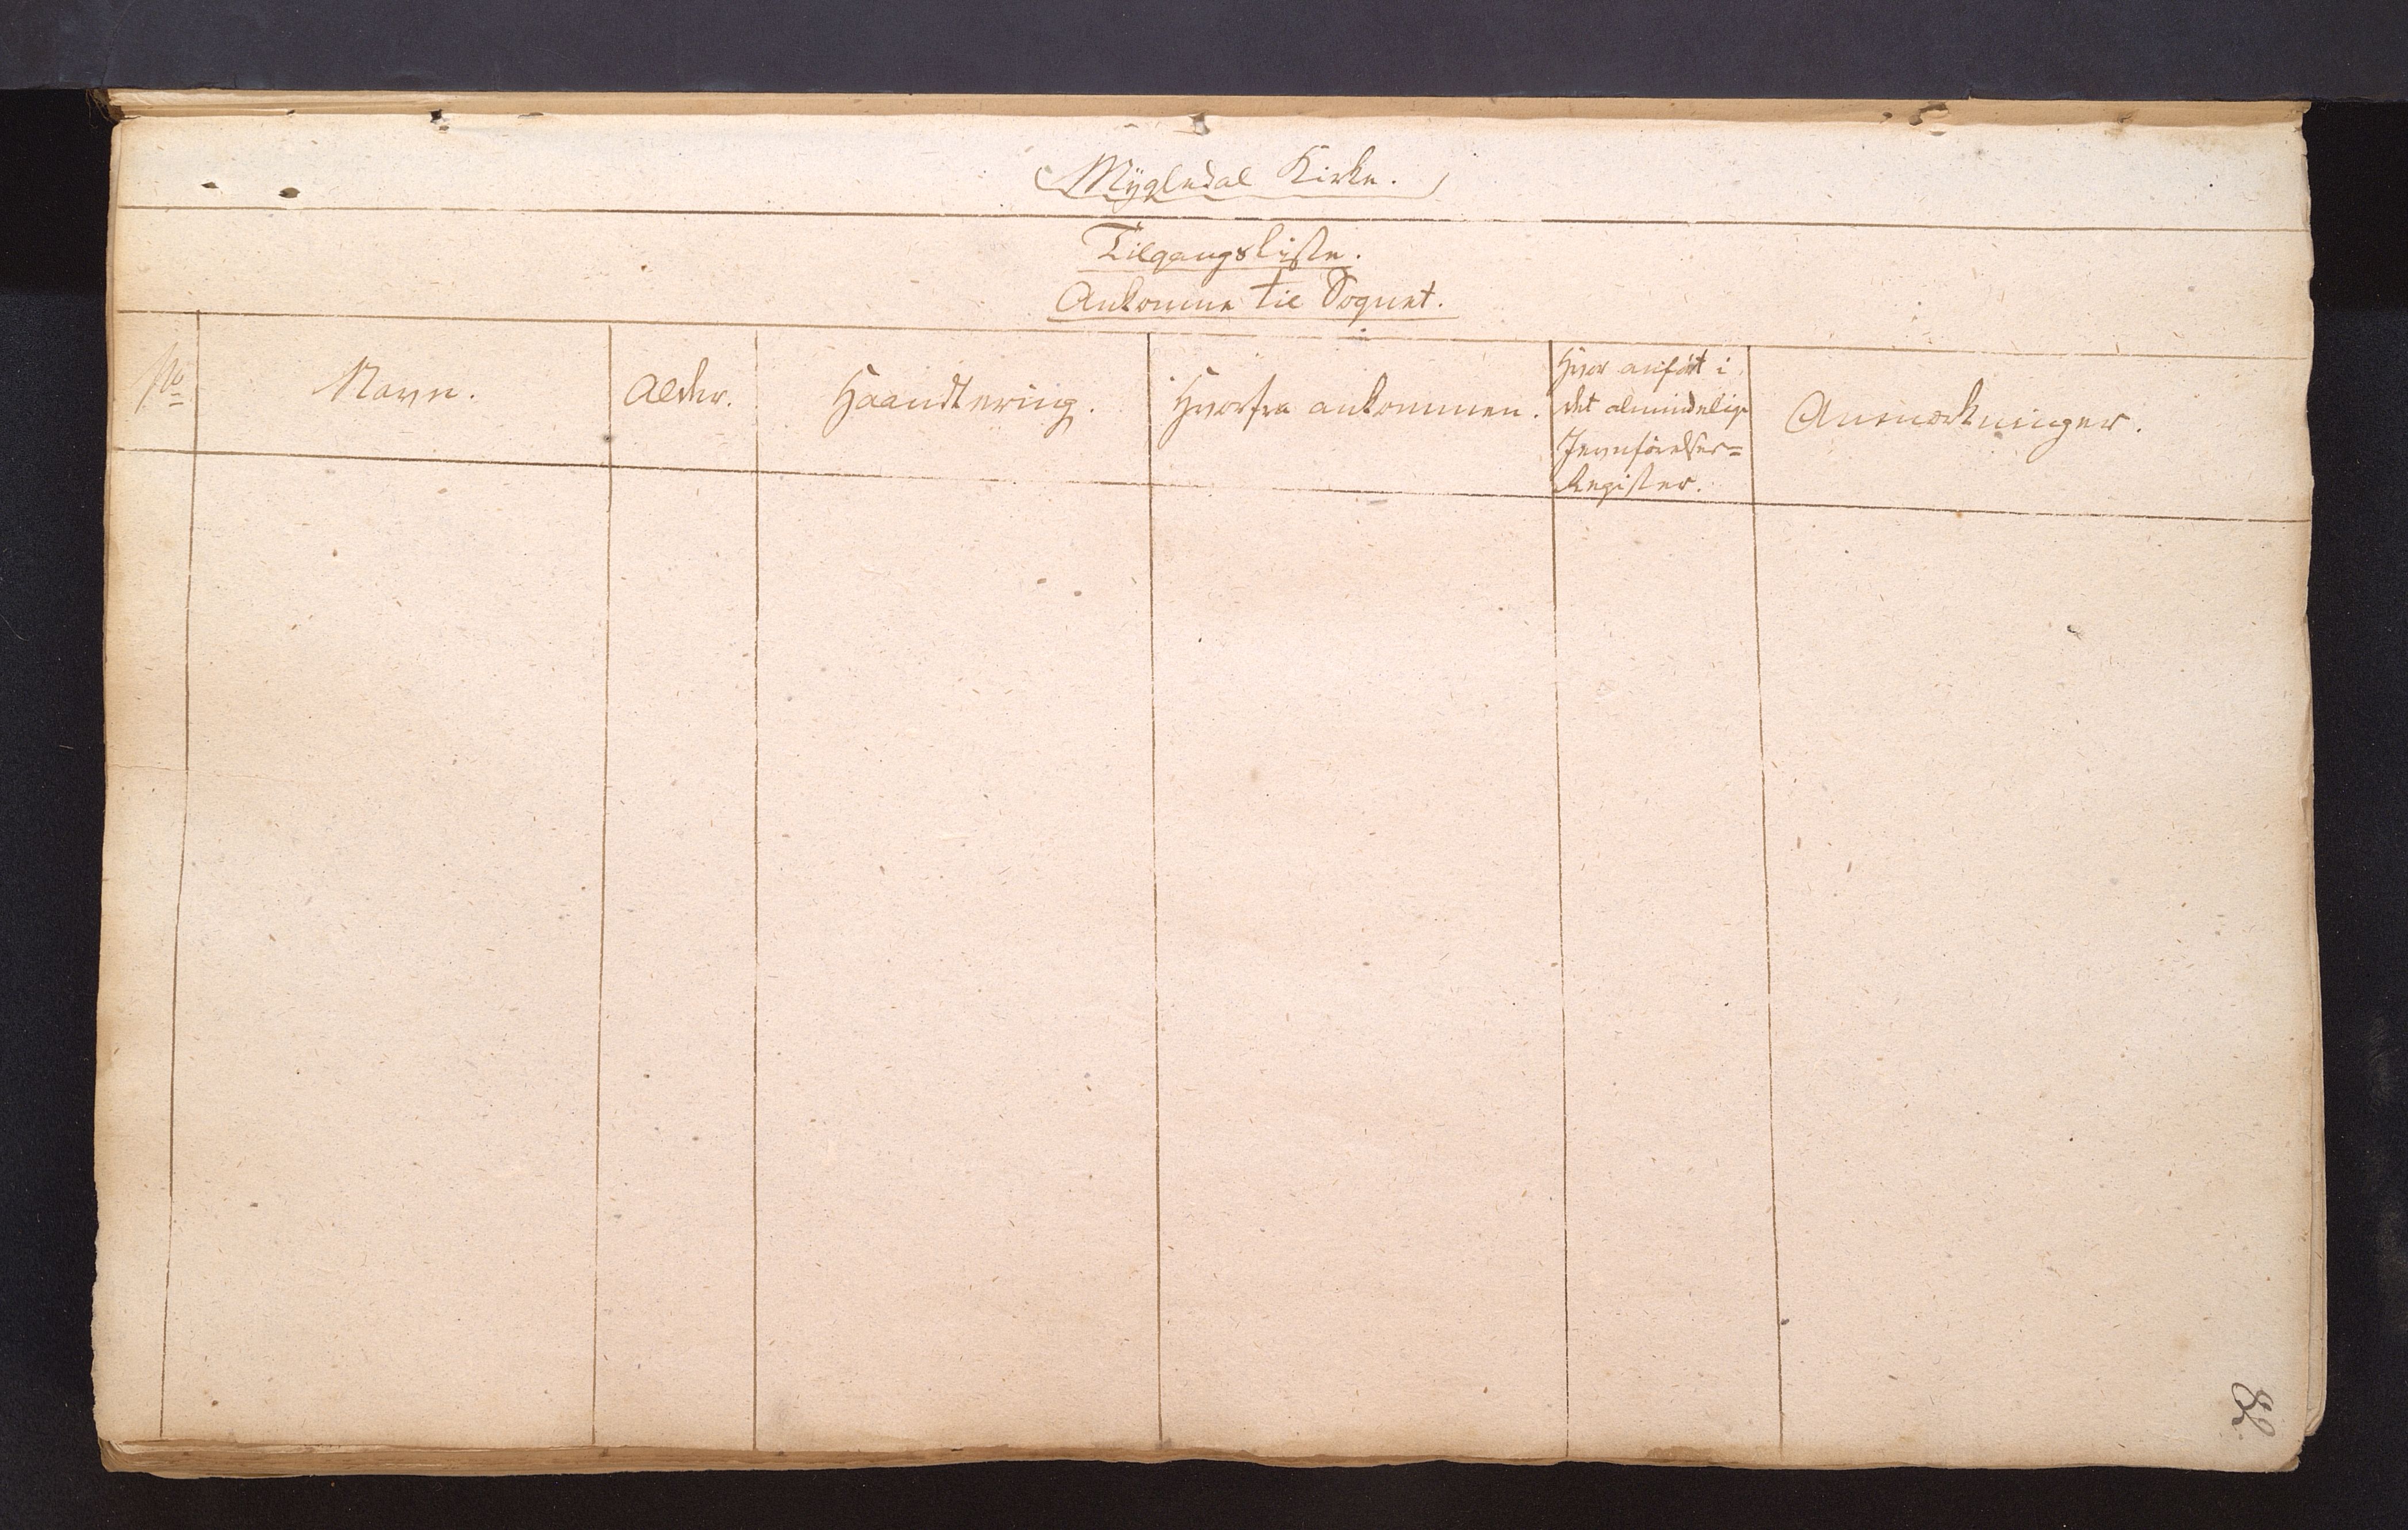 Mÿgledal Kirke.
Tilgangsliste.
Ankomne til Sognet.
No
Navn.
Alder.
Haandtering.
Hvorfra ankommen.
Hvor anført i
det almindelige
Jevnførelses=
Register.
Anmærkninger.